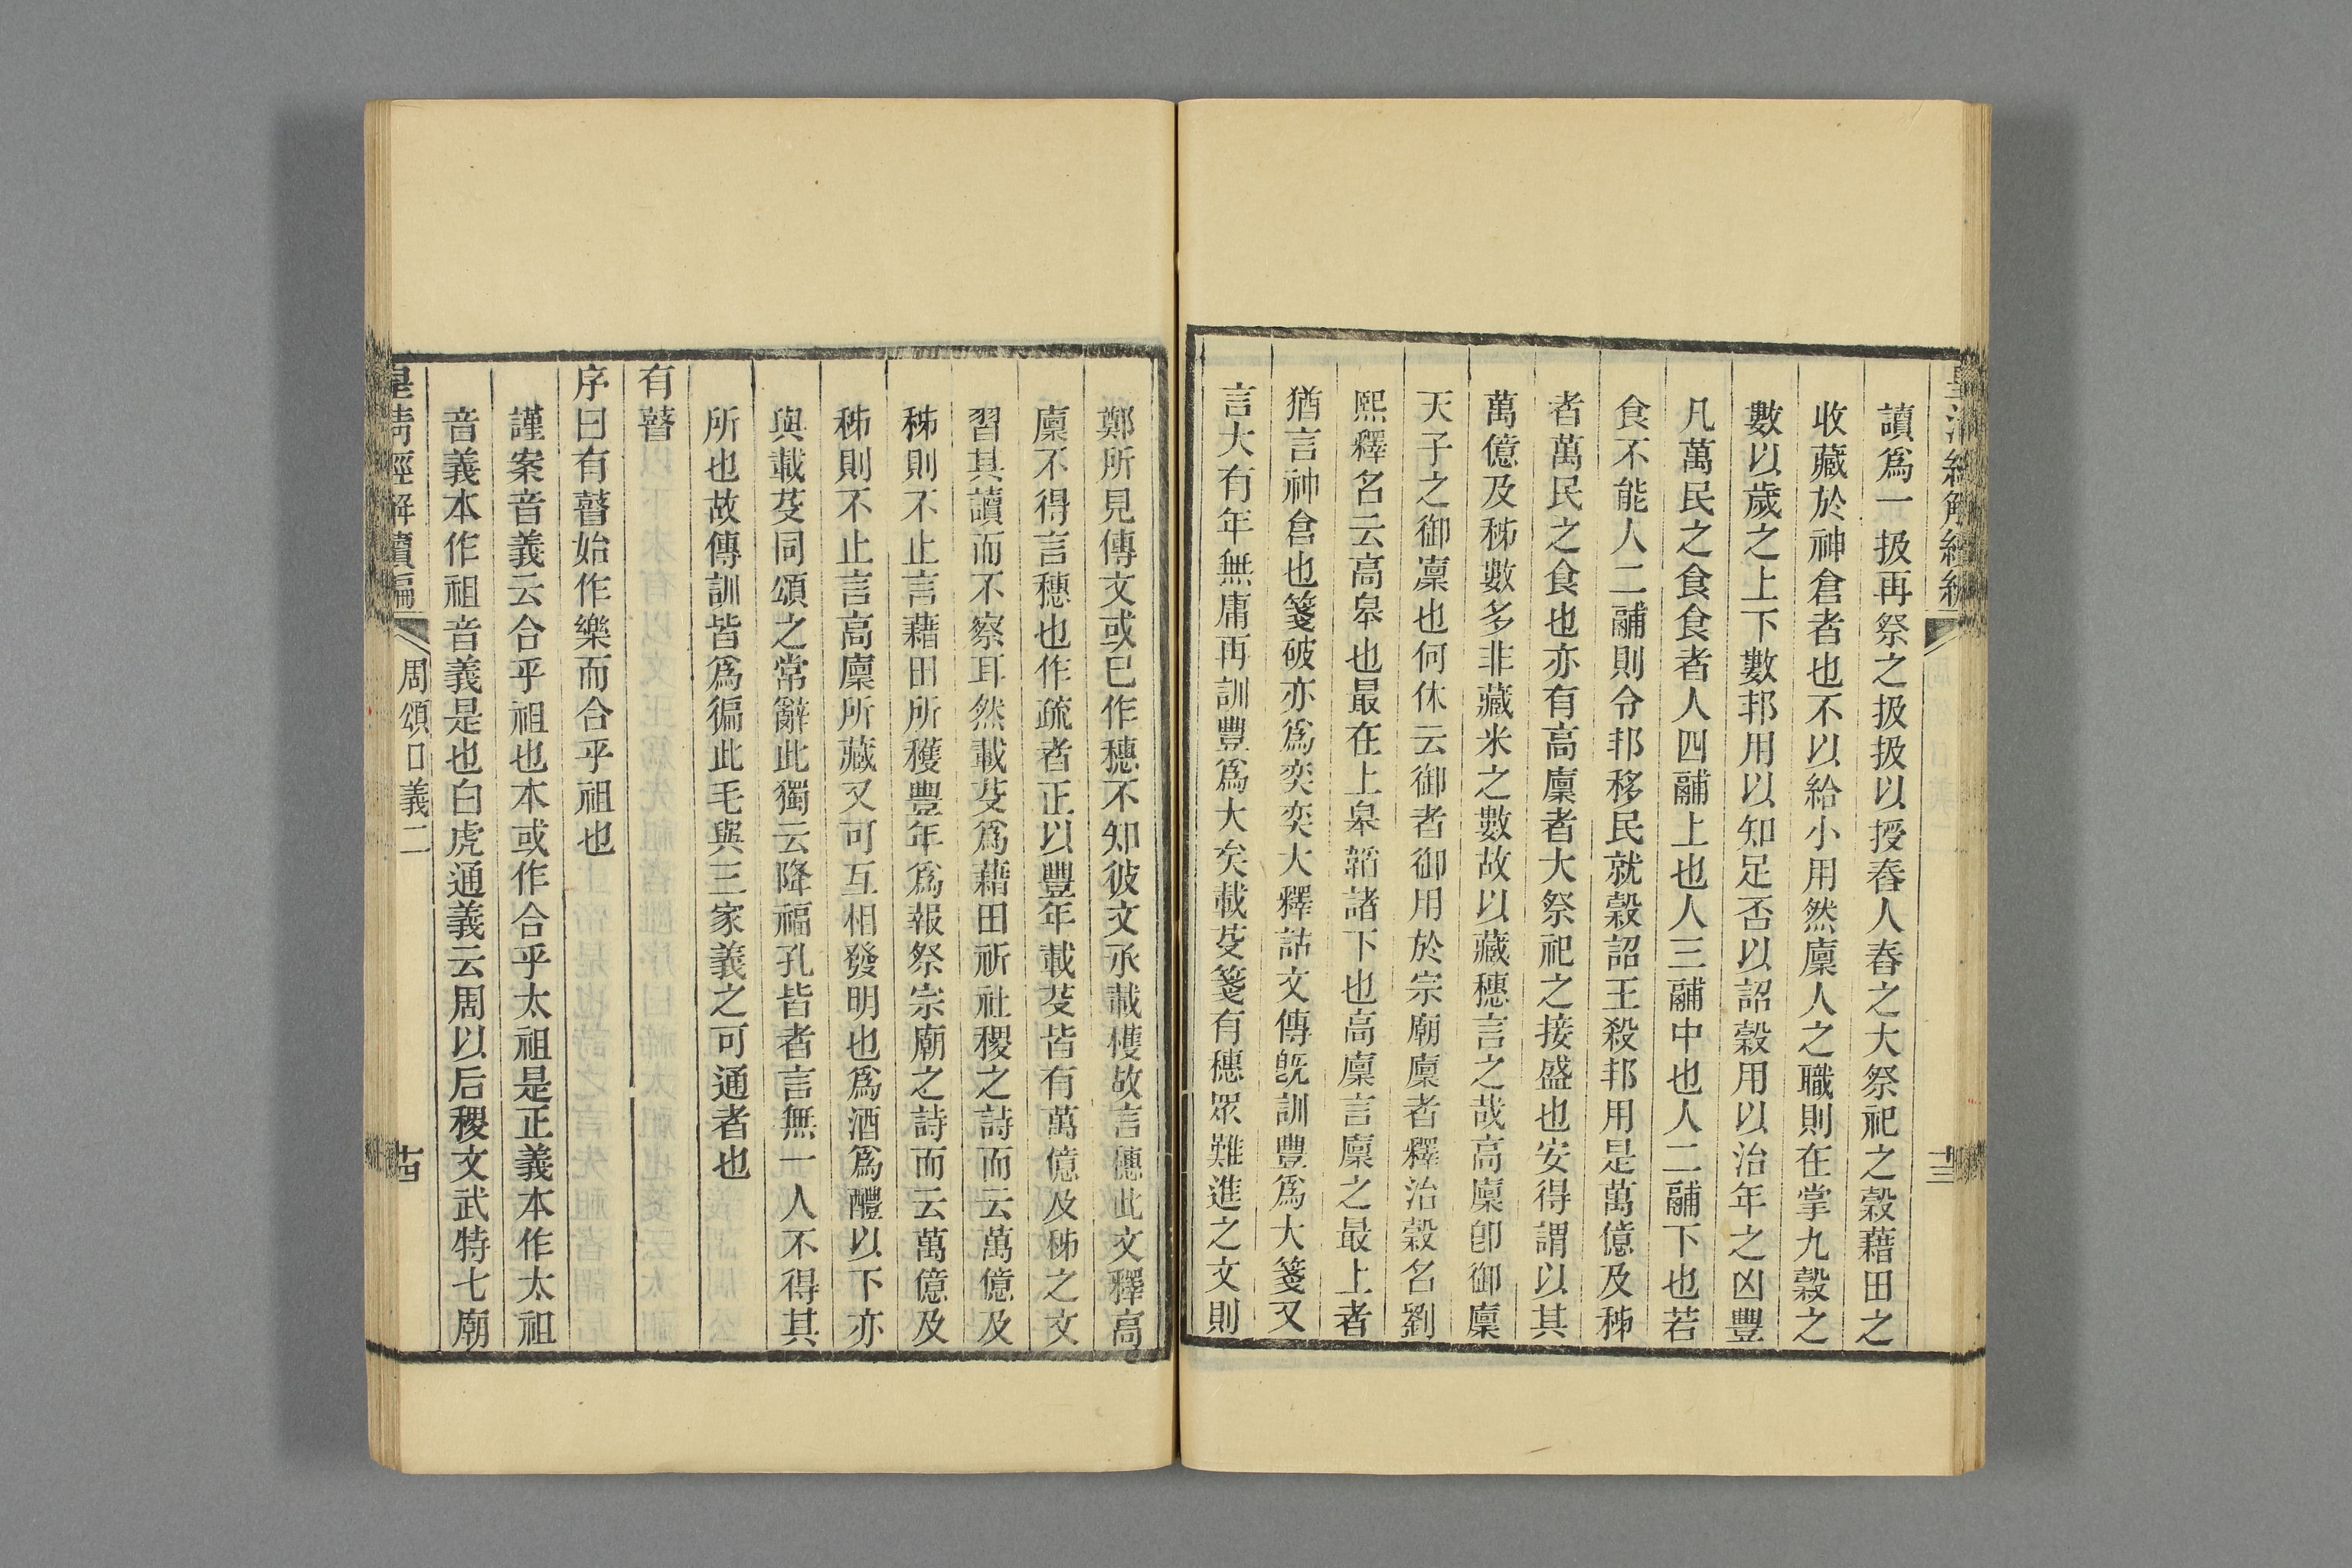 讀爲一扱再祭之扱扱以授舂人舂之大祭祀之穀藉田之
收藏於神倉者也不以給小用然廩人之職則在掌九穀之
數以歲之上下數邦用以知足否以詔穀用以治年之凶豐
凡萬民之食食者人四鬴上也人三鬴中也人二鬴下也若
食不能人二鬴則令邦移民就穀詔王殺邦用是萬億及秭
者萬民之食也亦有高廩者大祭祀之接盛也安得謂以其
萬億及秭數多非藏米之數故以藏穗言之哉高廩卽御廩
天子之御廩也何休云御者御用於宗廟廩者釋治穀名劉
熙釋名云高皋也最在上皋韜諸下也高廩言廩之最上者
猶言神倉也箋破亦爲奕奕大釋詁文傳旣訓豐爲大箋又
言大有年無庸再訓豐爲大矣載芟箋有穗眾難進之文則
鄭所見傳文或已作穗不知彼文承載穫故言穗此文釋高
廩不得言穗也作疏者正以豐年載芟皆有萬億及秭之文
習其讀而不察耳然載芟爲藉田祈社稷之詩而云萬億及
秭則不止言藉田所穫豐年爲報祭宗廟之詩而云萬億及
秭則不止言高廩所藏又可互相發明也爲酒爲醴以下亦
與載芟同頌之常辭此獨云降福孔皆者言無一人不得其
所也故傳訓皆爲徧此毛與三家義之可通者也
有瞽
序曰有瞽始作樂而合乎祖也
謹案音義云合乎祖也本或作合乎太祖是正義本作太祖
音義本作祖音義是也白虎通義云周以后稷文武特七廟
皇清經解續編 周頌口義二 十四
十三